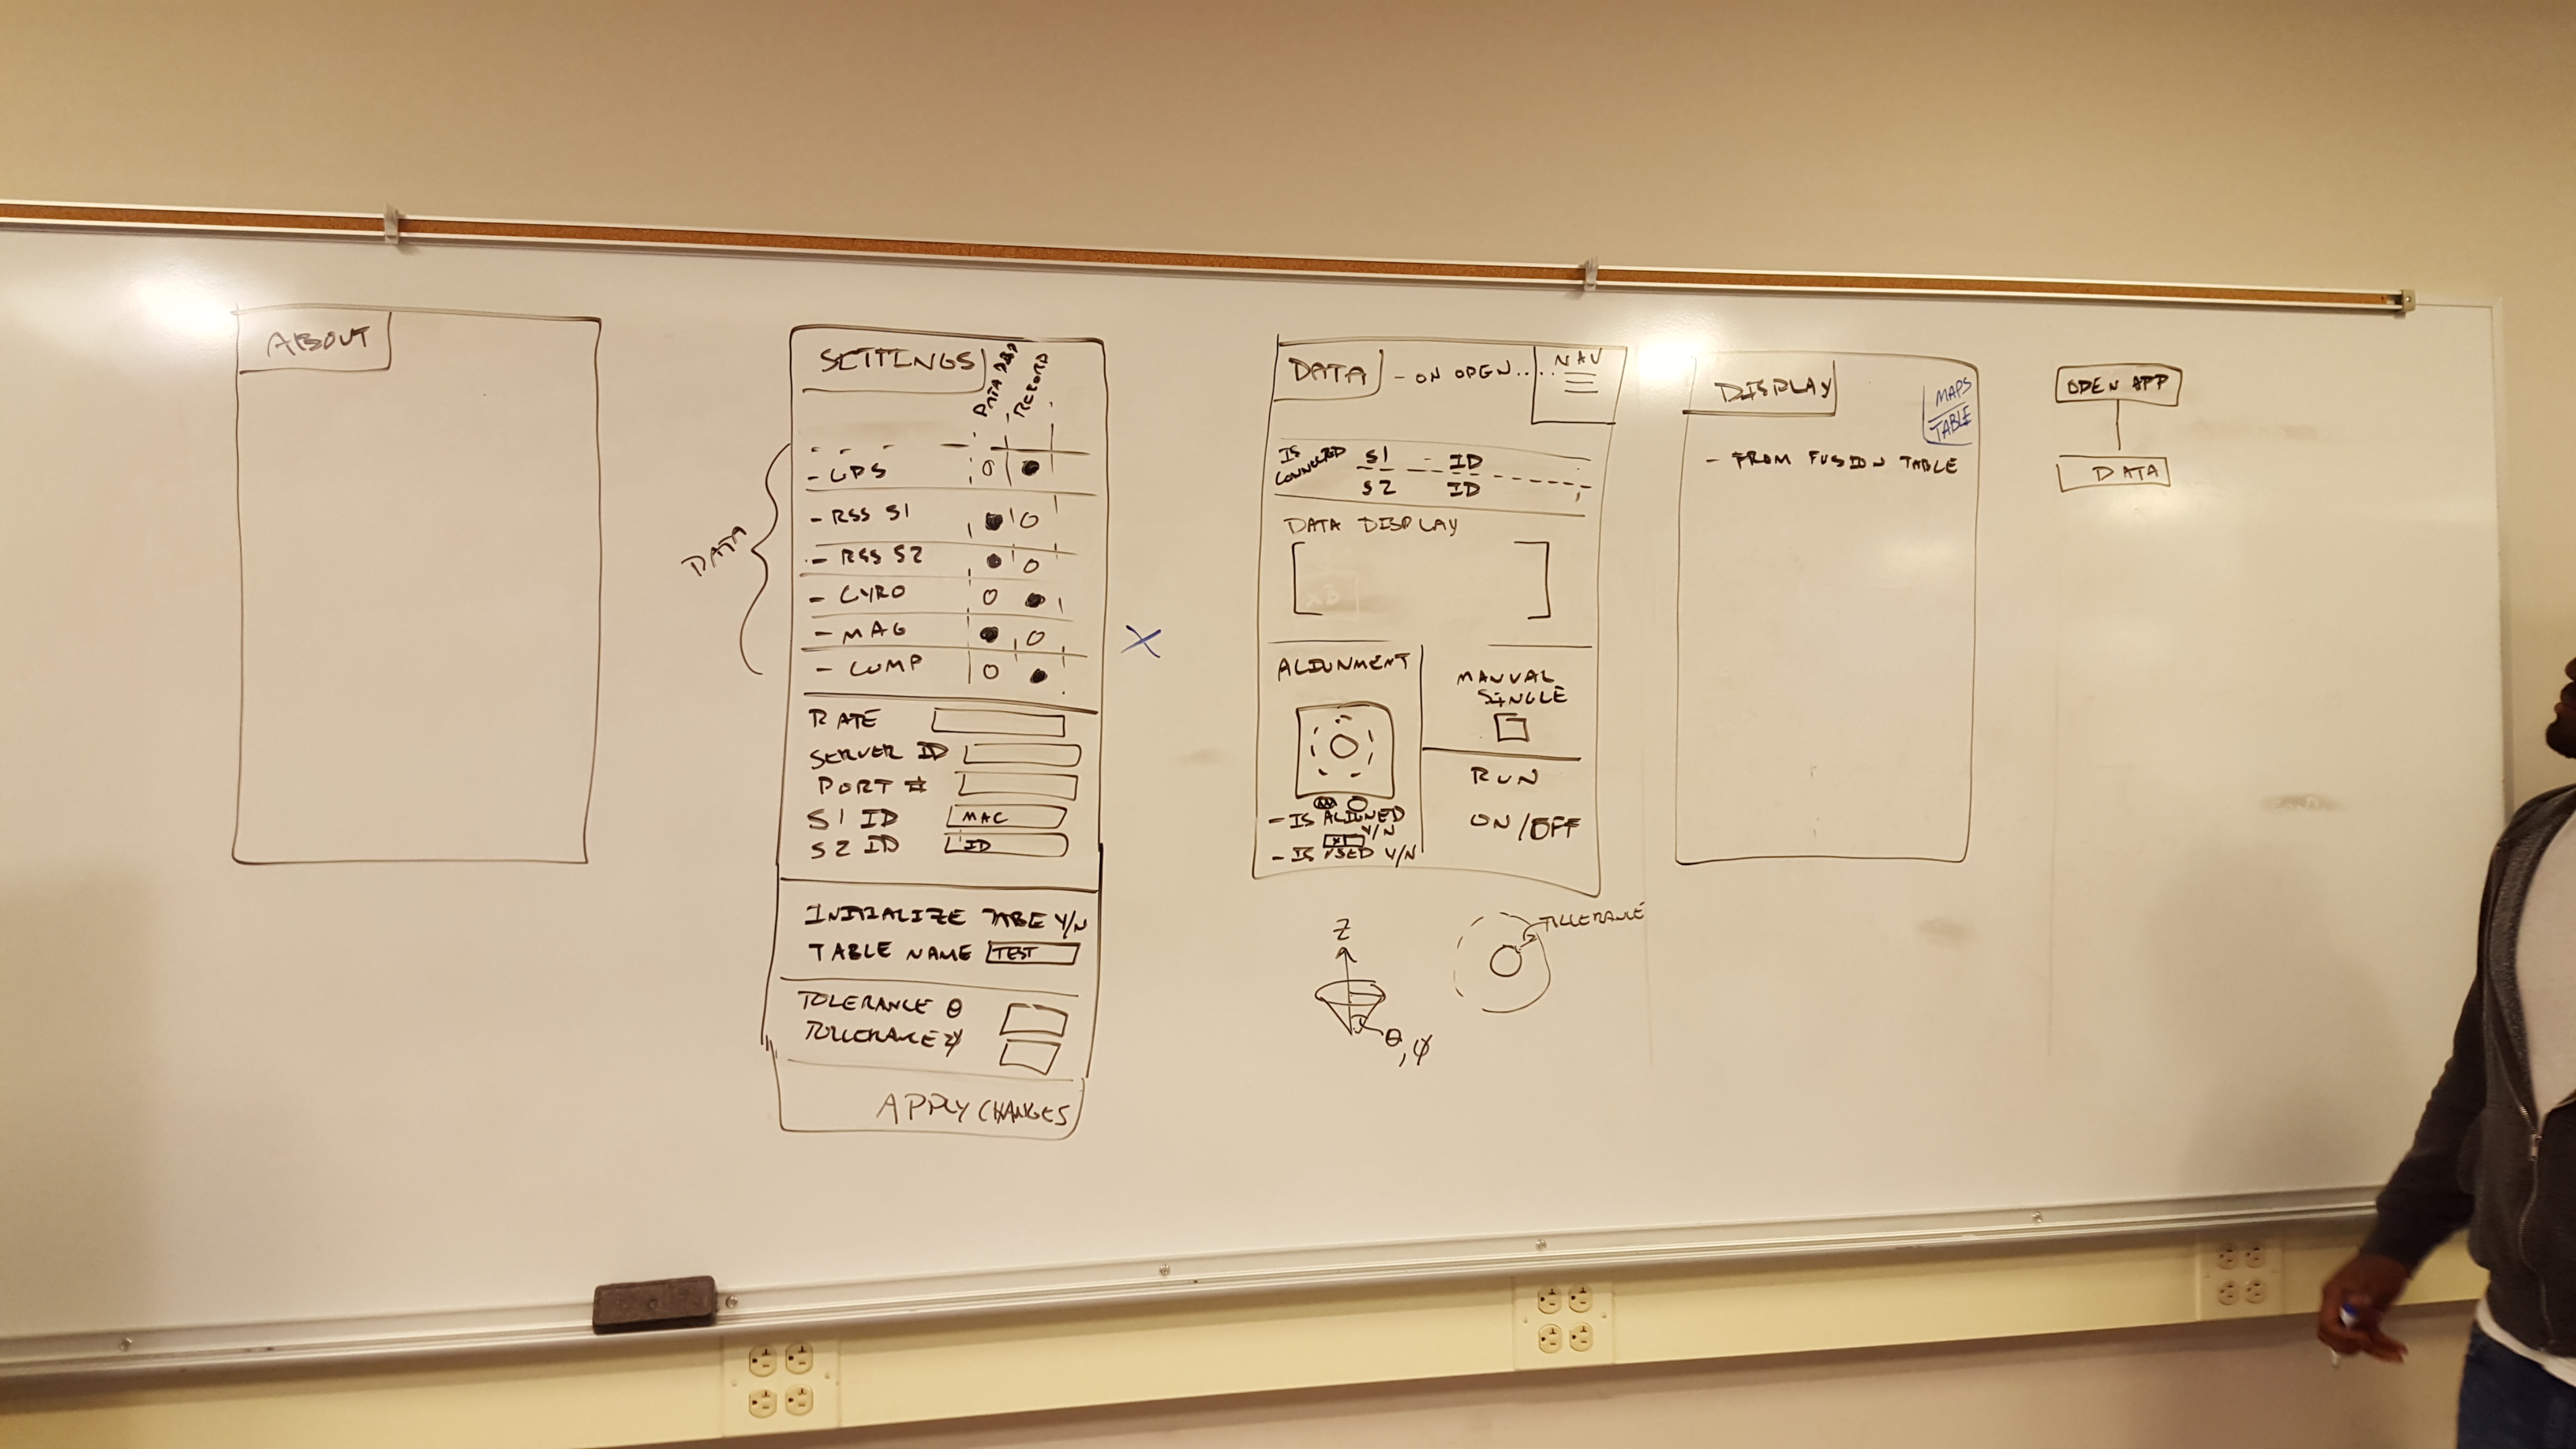 ABOUT
SETTINGS
RECORD
DATA
- GPS
- RSS S1
- RSS S2
- GYRO
- MAG
- COMP
RATE
SERVER ID
PORT #
S1 ID MAC
S2 ID ID
INITIALIZE TABE Y/N
TABLE NAME TEST
TOLERANCE θ
TOLLERANCE ψ
APPLY CHANGES
X
DATA - ON OPEN..... NAV
IS CONNECTED
S1 ID
S2 ID
DATA DISPLAY
ALIGNMENT
- IS ALIGNED
Y/N
- IS USED Y/N
MANUAL
SINGLE
RUN
ON/OFF
Z
θ, ψ
TOLLERANCE
DISPLAY
MAPS
TABLE
- FROM FUSION TABLE
OPEN APP
DATA